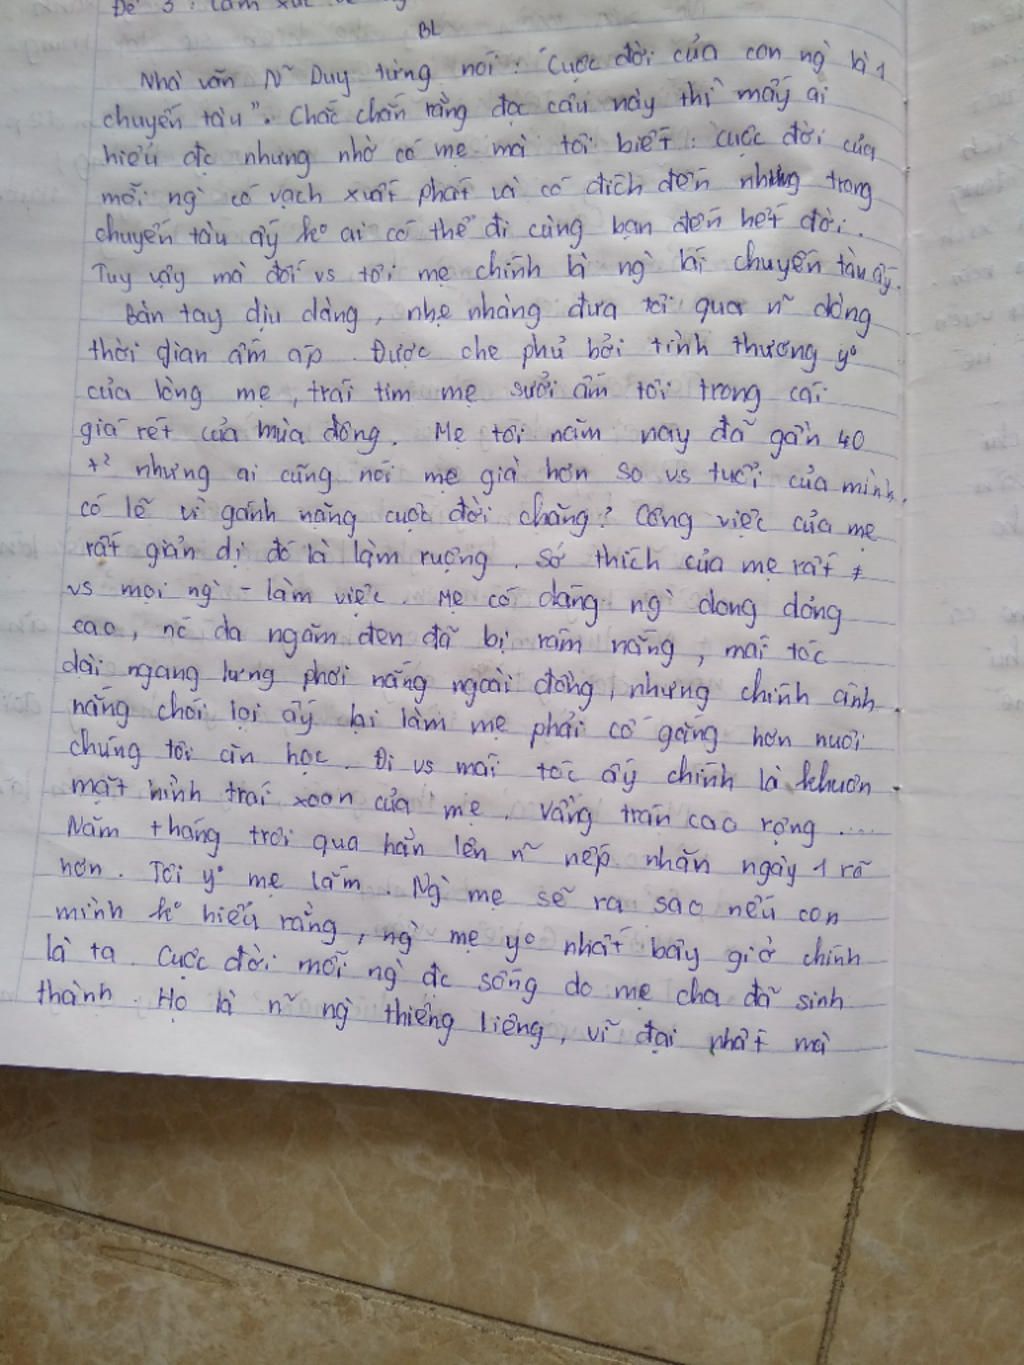 Đề 3 : Cảm xúc
BL
Nhà văn Ng~ Duy từng nói : "Cuộc đời của con ng` là 1
chuyến tàu". Chắc chắn rằng đọc câu này thì mấy ai
hiểu đc nhưng nhờ có mẹ mà tôi biết : cuộc đời của
mỗi ng` có vạch xuất phát và có đích đến nhưng trong
chuyến tàu ấy ko ai có thể đi cùng bạn đến hết đời.
Tuy vậy mà đối vs tôi mẹ chính là ng` lái chuyến tàu ấy.
Bàn tay dịu dàng, nhẹ nhàng đưa tôi qua n~ dòng
thời gian ấm áp. Được che phủ bởi tình thương yo
của lòng mẹ, trái tim mẹ sưởi ấm tôi trong cái
giá rét của mùa đông. Mẹ tôi năm nay đã gần 40
t² nhưng ai cũng nói mẹ già hơn so vs tuổi của mình,
có lẽ vì gánh nặng cuộc đời chăng? Công việc của mẹ
rất giản dị đó là làm ruộng. Sở thích của mẹ rất ≠
vs mọi ng` - làm việc. Mẹ có dáng ng` dong dỏng
cao, nc da ngăm đen đã bị rám nắng, mái tóc
dài ngang lưng phơi nắng ngoài đồng, nhưng chính ánh
nắng chói lọi ấy lại làm mẹ phải cố gắng hơn nuôi
chúng tôi ăn học. Đi vs mái tóc ấy chính là khuôn
mặt hình trái xoan của mẹ. Vầng trán cao rộng ....
Năm tháng trôi qua hằn lên n~ nếp nhăn ngày 1 rõ
hơn. Tôi yo mẹ lắm. Ng` mẹ sẽ ra sao nếu con
mình ko hiểu rằng, ng` mẹ yo nhất bây giờ chính
là ta. Cuộc đời mỗi ng` đc sống do mẹ cha đã sinh
thành. Họ là n~ ng` thiêng liêng, vĩ đại nhất mà